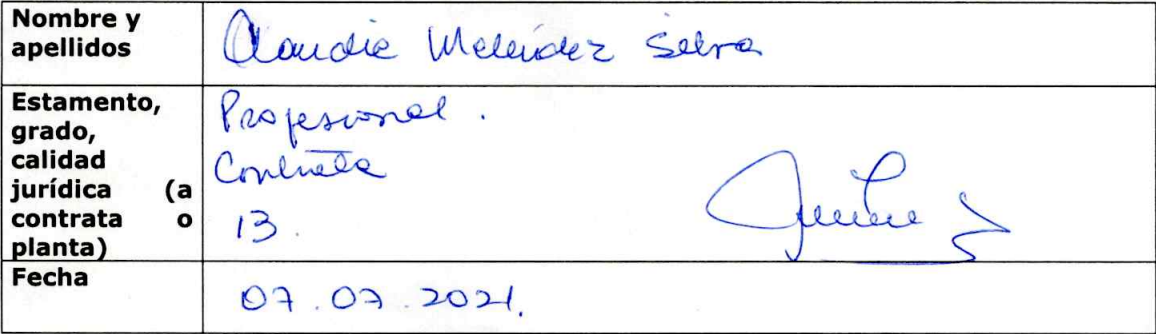 Nombre y apellidos
Claudia Meléndez Selva
Estamento,
grado,
calidad
jurídica (a
contrata o
planta)
Profesional.
Contrata
13.
Fecha
07.07.2021.